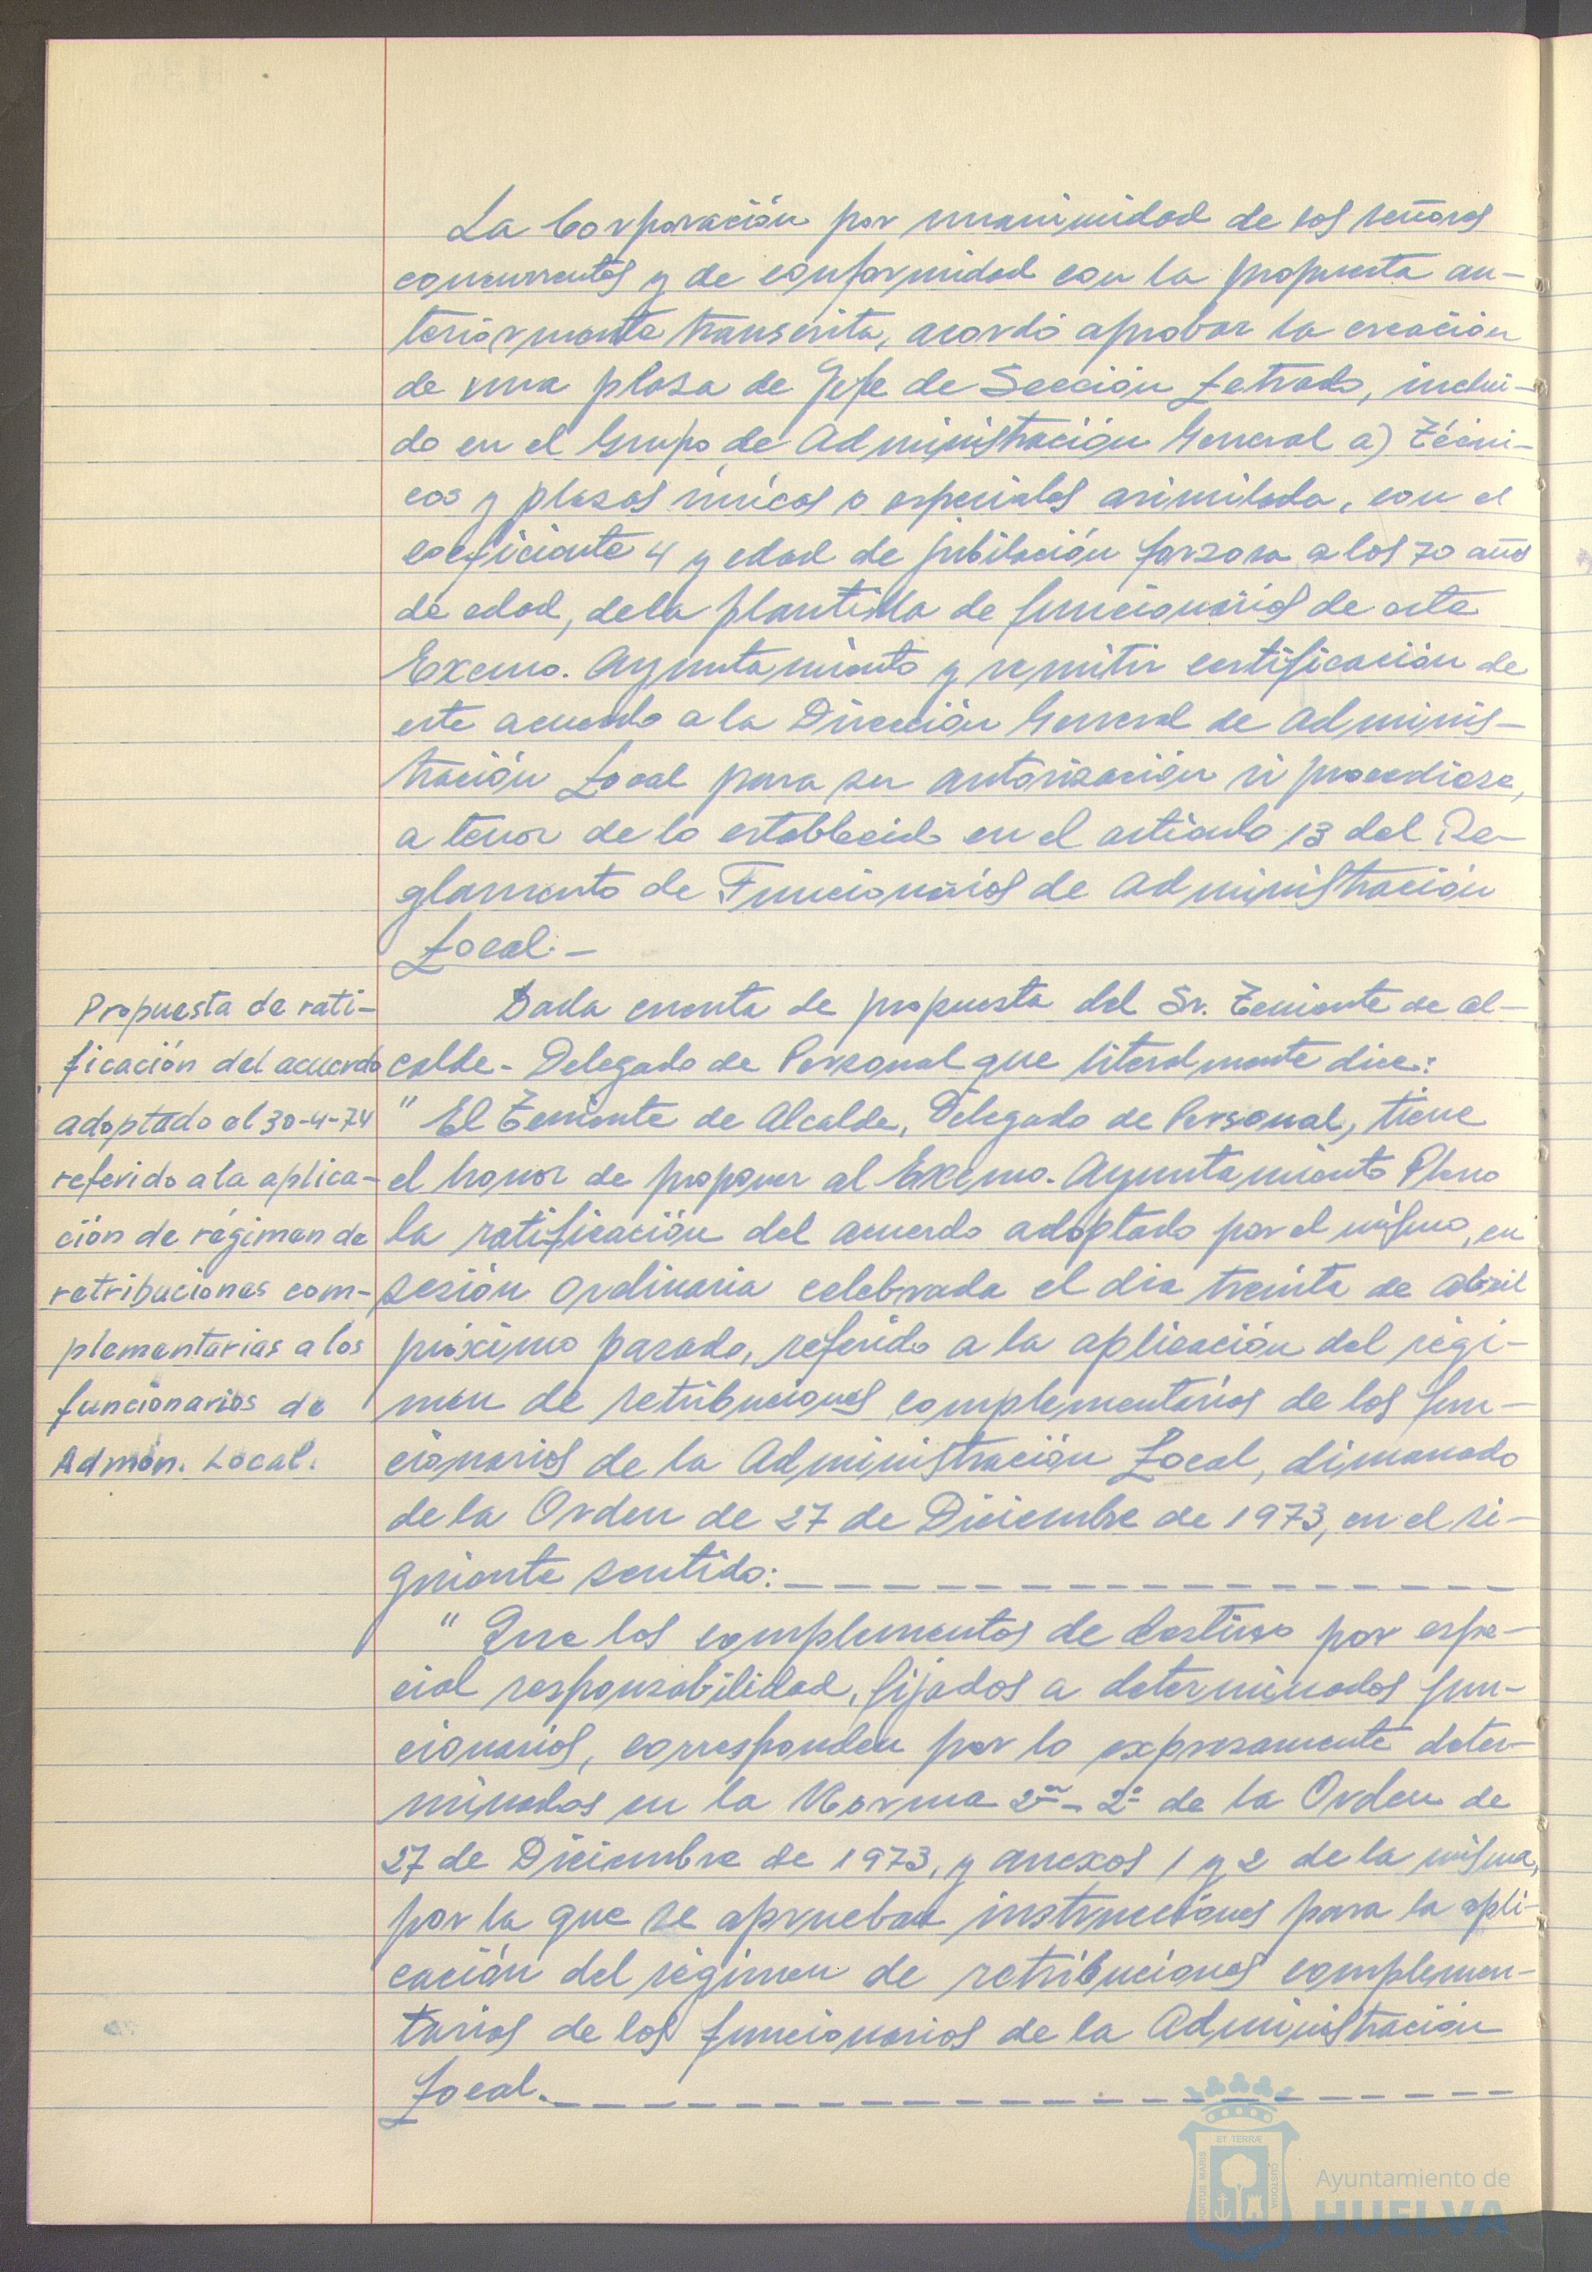 La Corporación por unanimidad de los señores
concurrentes y de conformidad con la propuesta an-
teriormente transcrita, acordó aprobar la creación
de una plaza de Jefe de Sección Letrado, inclui-
do en el Grupo de Administración General a) Técni-
cos y plazas únicas o especiales asimilada, con el
coeficiente 4 y edad de jubilación forzosa a los 70 años
de edad, de la plantilla de funcionarios de este
Excmo. Ayuntamiento y remitir certificación de
este acuerdo a la Dirección General de Adminis-
tración Local para su autorización si procediese,
a tenor de lo establecido en el artículo 13 del Re-
glamento de Funcionarios de Administración
Local.-
Propuesta de rati-
ficación del acuerdo
adoptado el 30-4-74
referido a la aplica-
ción de régimen de
retribuciones com-
plementarias a los
funcionarios de
Admón. Local.
Dada cuenta de propuesta del Sr. Teniente de Al-
calde-Delegado de Personal que literalmente dice:
" El Teniente de Alcalde, Delegado de Personal, tiene
el honor de proponer al Excmo. Ayuntamiento Pleno
la ratificación del acuerdo adoptado por el mismo, en
sesión ordinaria celebrada el dia treinta de abril
próximo pasado, referido a la aplicación del régi-
men de retribuciones complementarias de los fun-
cionarios de la Administración Local, dimanado
de la Orden de 27 de Diciembre de 1973, en el si-
guiente sentido:
" Que los complementos de destino por espe-
cial responsabilidad, fijados a determinados fun-
cionarios, corresponden por lo expresamente deter-
minados en la Norma 2ª-2º de la Orden de
27 de Diciembre de 1973, y anexos 1 y 2 de la misma,
por la que se aprueban instrucciones para la apli-
cación del régimen de retribuciones complemen-
tarias de los funcionarios de la Administración
Local.
ET TERRÆ
PORTUS MARIS
CUSTODIA
Ayuntamiento de
HUELVA